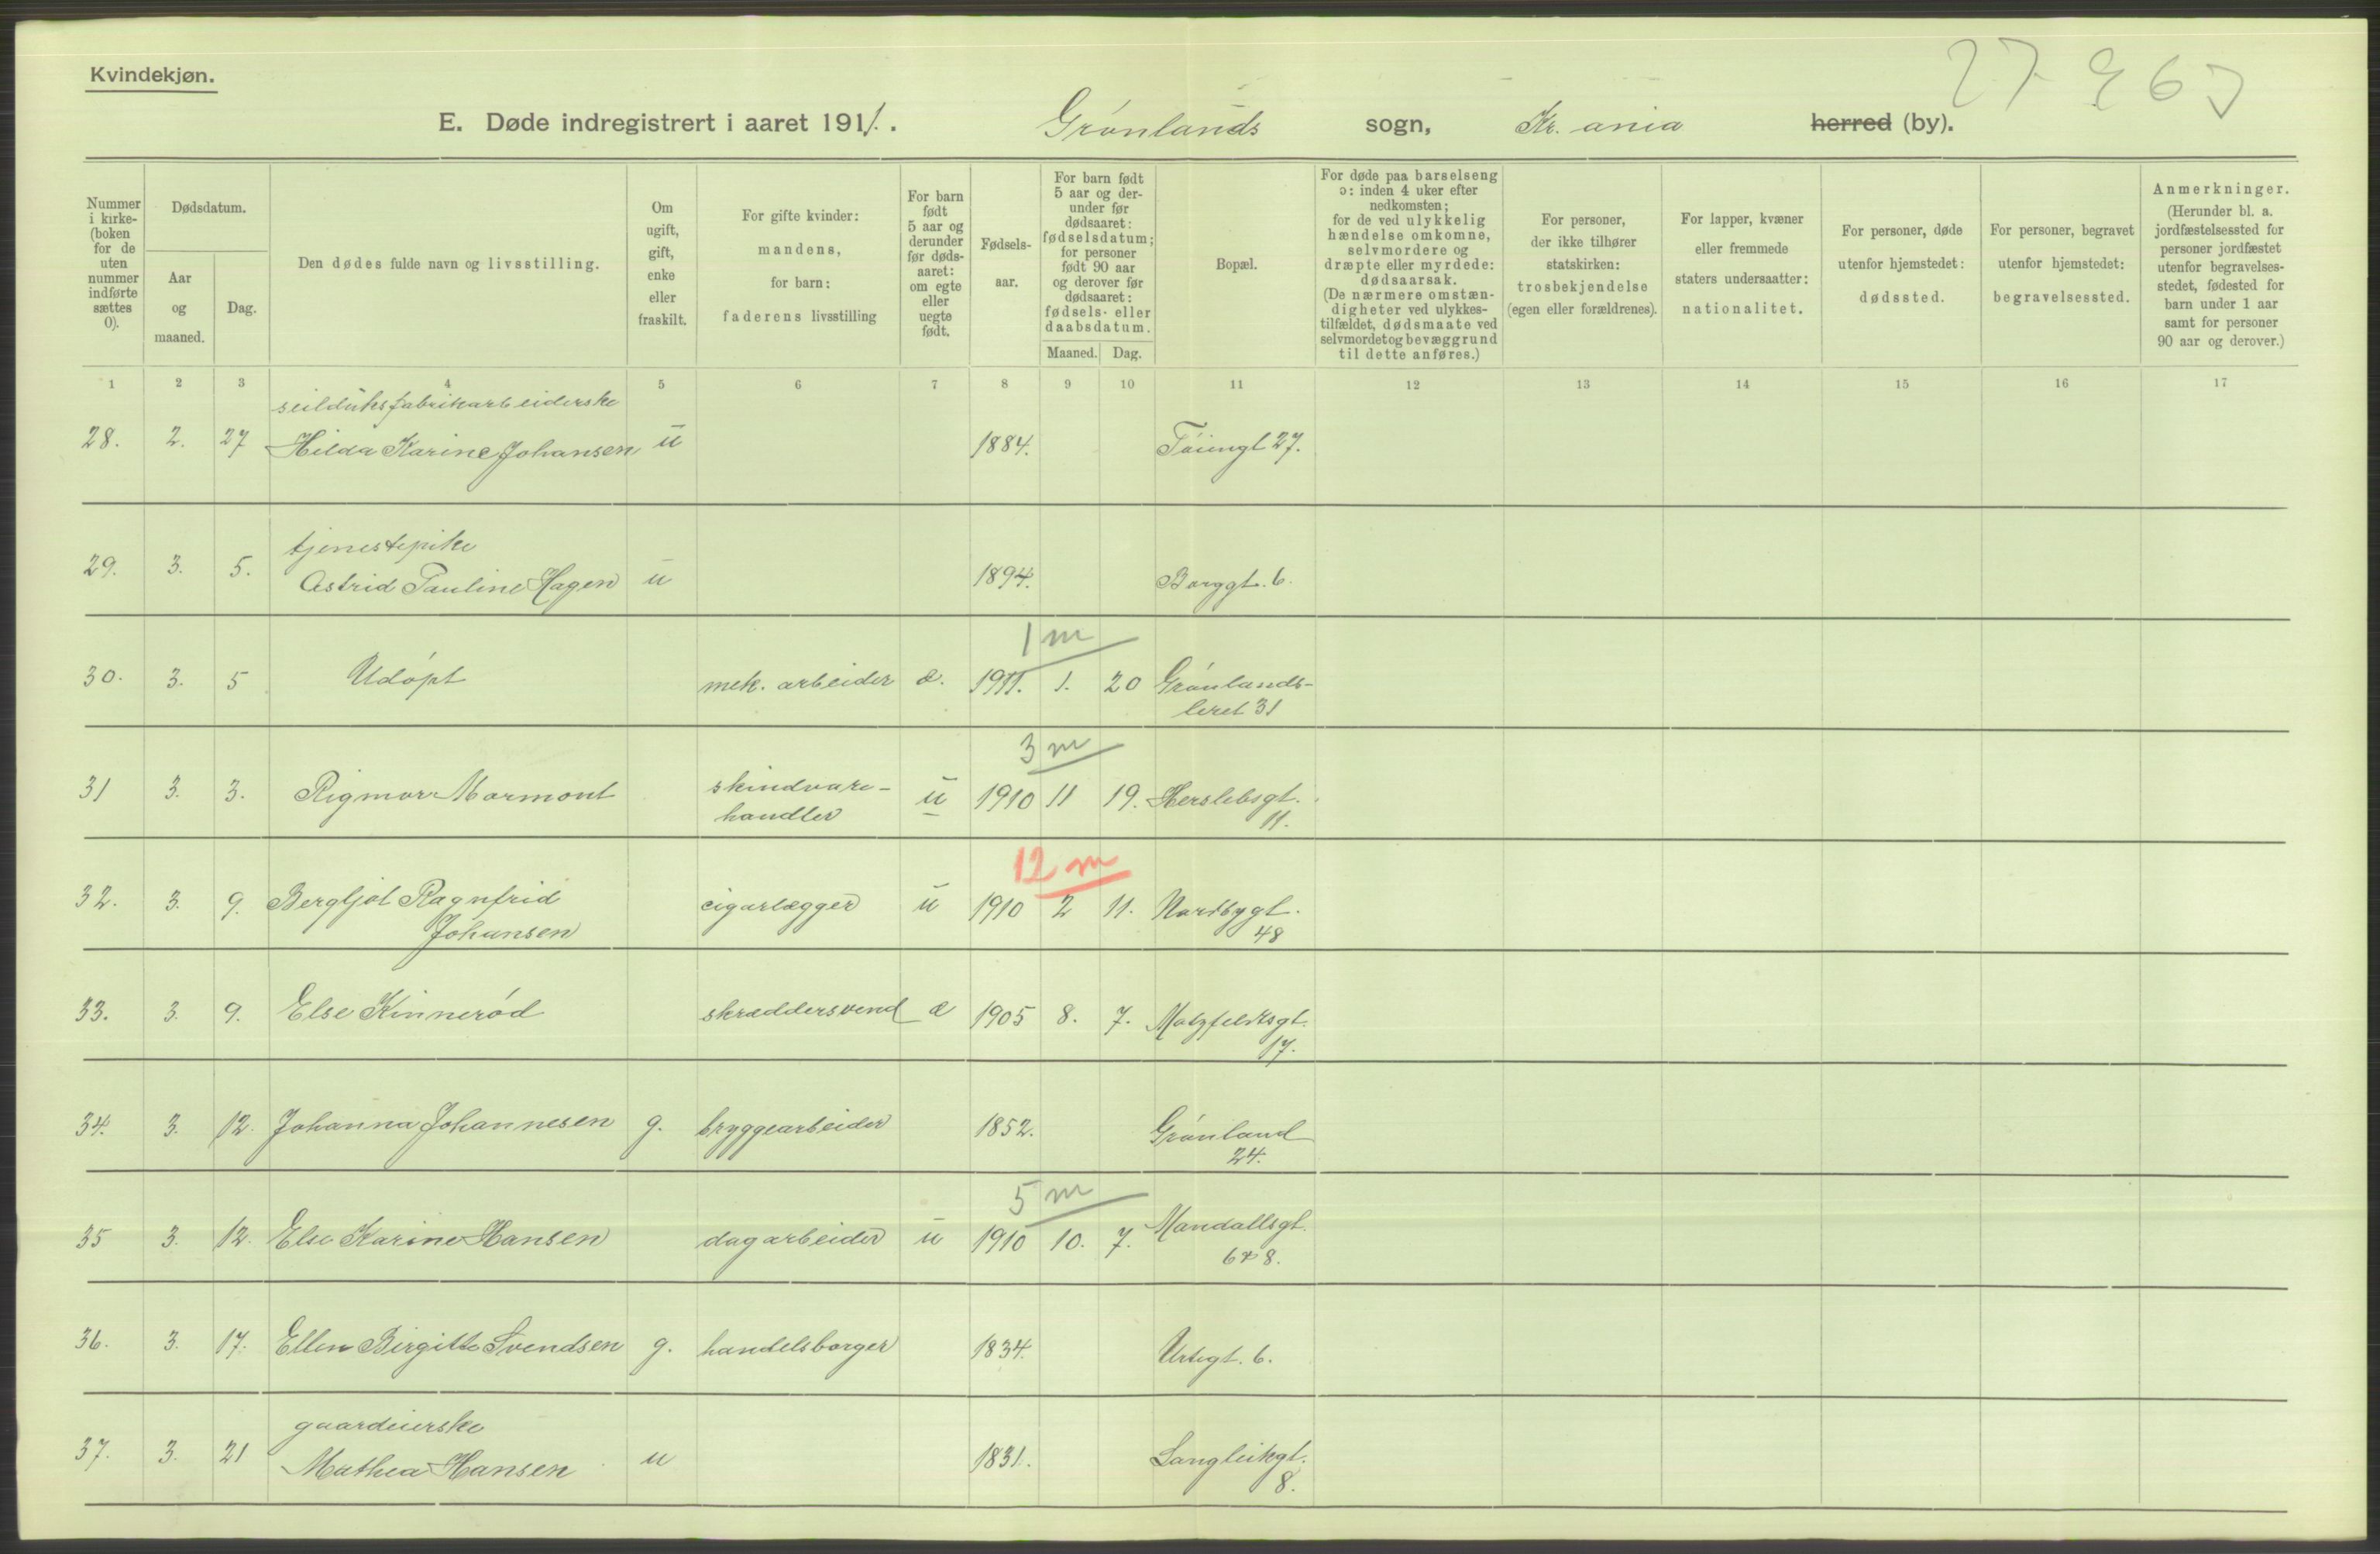 Kvindekjøn.
27 963
E. Døde indregistrert i aaret 1911. Grønlands sogn, Kr.ania herred (by).
Nummer i kirke-(boken for de uten nummer indførte sættes 0).
Dødsdatum.
Aar og maaned.
Dag.
Den dødes fulde navn og livsstilling.
Om ugift, gift, enke eller fraskilt.
For gifte kvinder: mandens, for barn: faderens livsstilling
For barn født 5 aar og derunder før døds-aaret: om egte eller uegte født.
Fødsels-aar.
For barn født 5 aar og der-under før dødsaaret: fødselsdatum; for personer født 90 aar og derover før dødsaaret: fødsels- eller daabsdatum.
Maaned.
Dag.
Bopæl.
For døde paa barselseng ɔ: inden 4 uker efter nedkomsten; for de ved ulykkelig hændelse omkomne, selvmordere og dræpte eller myrdede: dødsaarsak. (De nærmere omstæn-digheter ved ulykkes-tilfældet, dødsmaate ved selvmordet og bevæggrund til dette anføres.)
For personer, der ikke tilhører statskirken: trosbekjendelse (egen eller forældrenes).
For lapper, kvæner eller fremmede staters undersaatter: nationalitet.
For personer, døde utenfor hjemstedet: dødssted.
For personer, begravet utenfor hjemstedet: begravelsessted.
Anmerkninger. (Herunder bl. a. jordfæstelsessted for personer jordfæstet utenfor begravelses-stedet, fødested for barn under 1 aar samt for personer 90 aar og derover.)
1 2 3 4 5 6 7 8 9 10 11 12 13 14 15 16 17
seilduksfabrikarbeiderske
28. 2. 27 Hilda Karine Johansen u 1884. Tøiengt 27.
tjenestepike
29. 3. 5. Astrid Pauline Hagen u 1894. Borggt. 6.
1 m
30. 3. 5 Udøpt mek. arbeider æ. 1911. 1. 20 Grønlands-
leret 31
3 m
31 3. 3. Rigmor Marmont skindvare- u 1910 11 19. Herslebsgt.
handler 11.
12 m
32. 3. 9. Bergljot Ragnfrid cigarlægger u 1910 2 11. Nordbygt.
Johansen 48
33. 3. 9. Else Kinnerød skræddersvend æ 1905 8. 7. Motzfeldtsgt.
17.
34. 3. 12. Johanna Johannesen g. bryggearbeider 1852. Grønland
24.
5 m
35 3. 12. Else Karine Hansen dagarbeider u 1910 10. 7. Mandallsgt.
6 & 8.
36. 3. 17. Ellen Birgitte Svendsen g. handelsborger 1834. Urtegt. 6.
gaardeierske
37. 3. 21 Mathea Hansen u 1831. Langleikgt.
8.